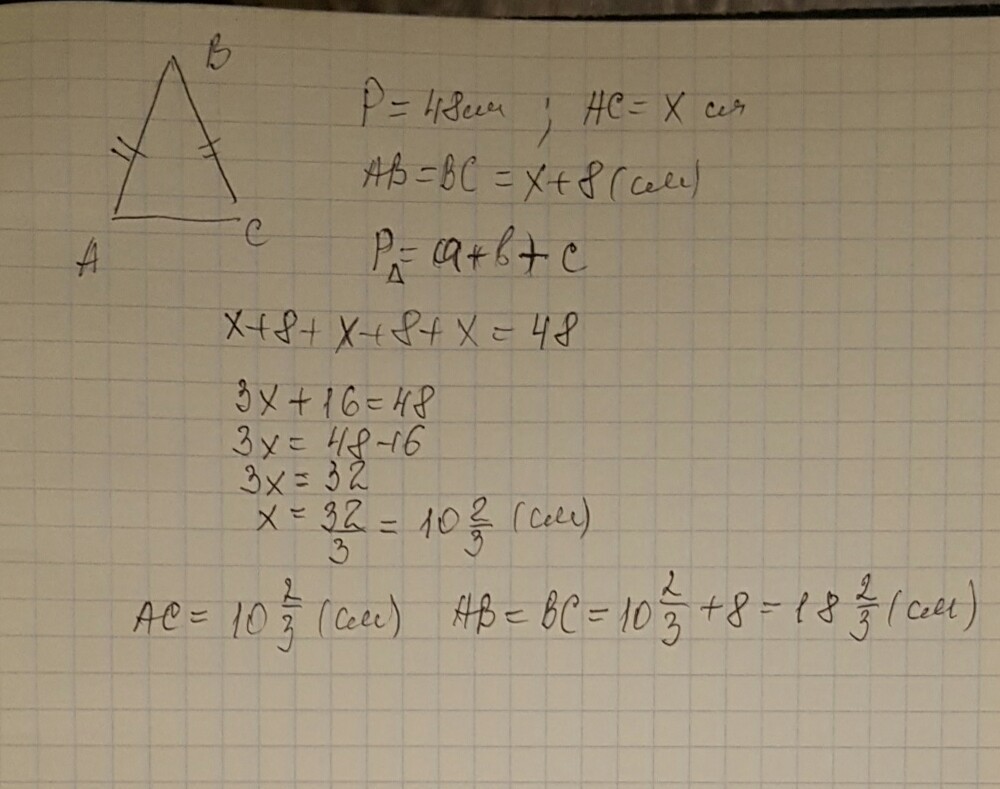 B
A
C
P = 48 см ; AC = x см
AB = BC = x + 8 (см)
P△ = a + b + c
x + 8 + x + 8 + x = 48
3x + 16 = 48
3x = 48 - 16
3x = 32
x = 32/3 = 10 2/3 (см)
AC = 10 2/3 (см) AB = BC = 10 2/3 + 8 = 18 2/3 (см)